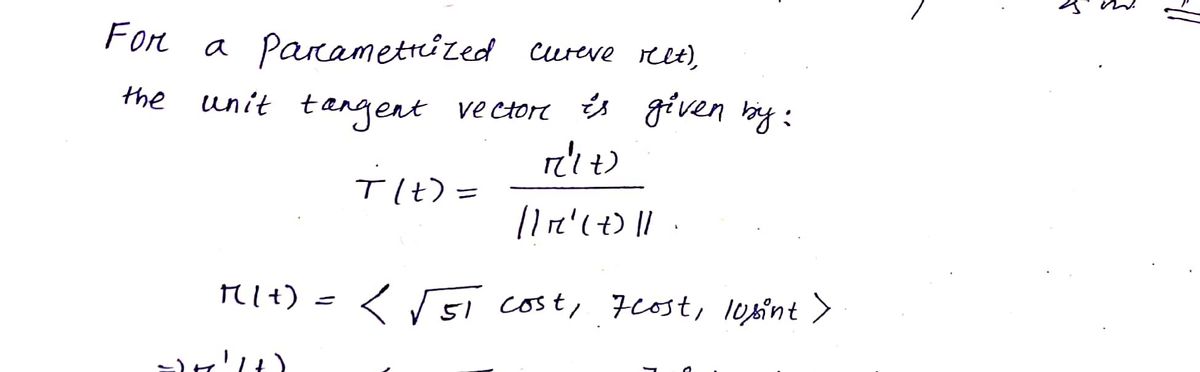 For a parametrized curve r(t),
the unit tangent vector is given by:
T(t) = r'(t) / ||r'(t)||.
r(t) = < √51 cost, 7cost, 10sint >
=> r'(t)